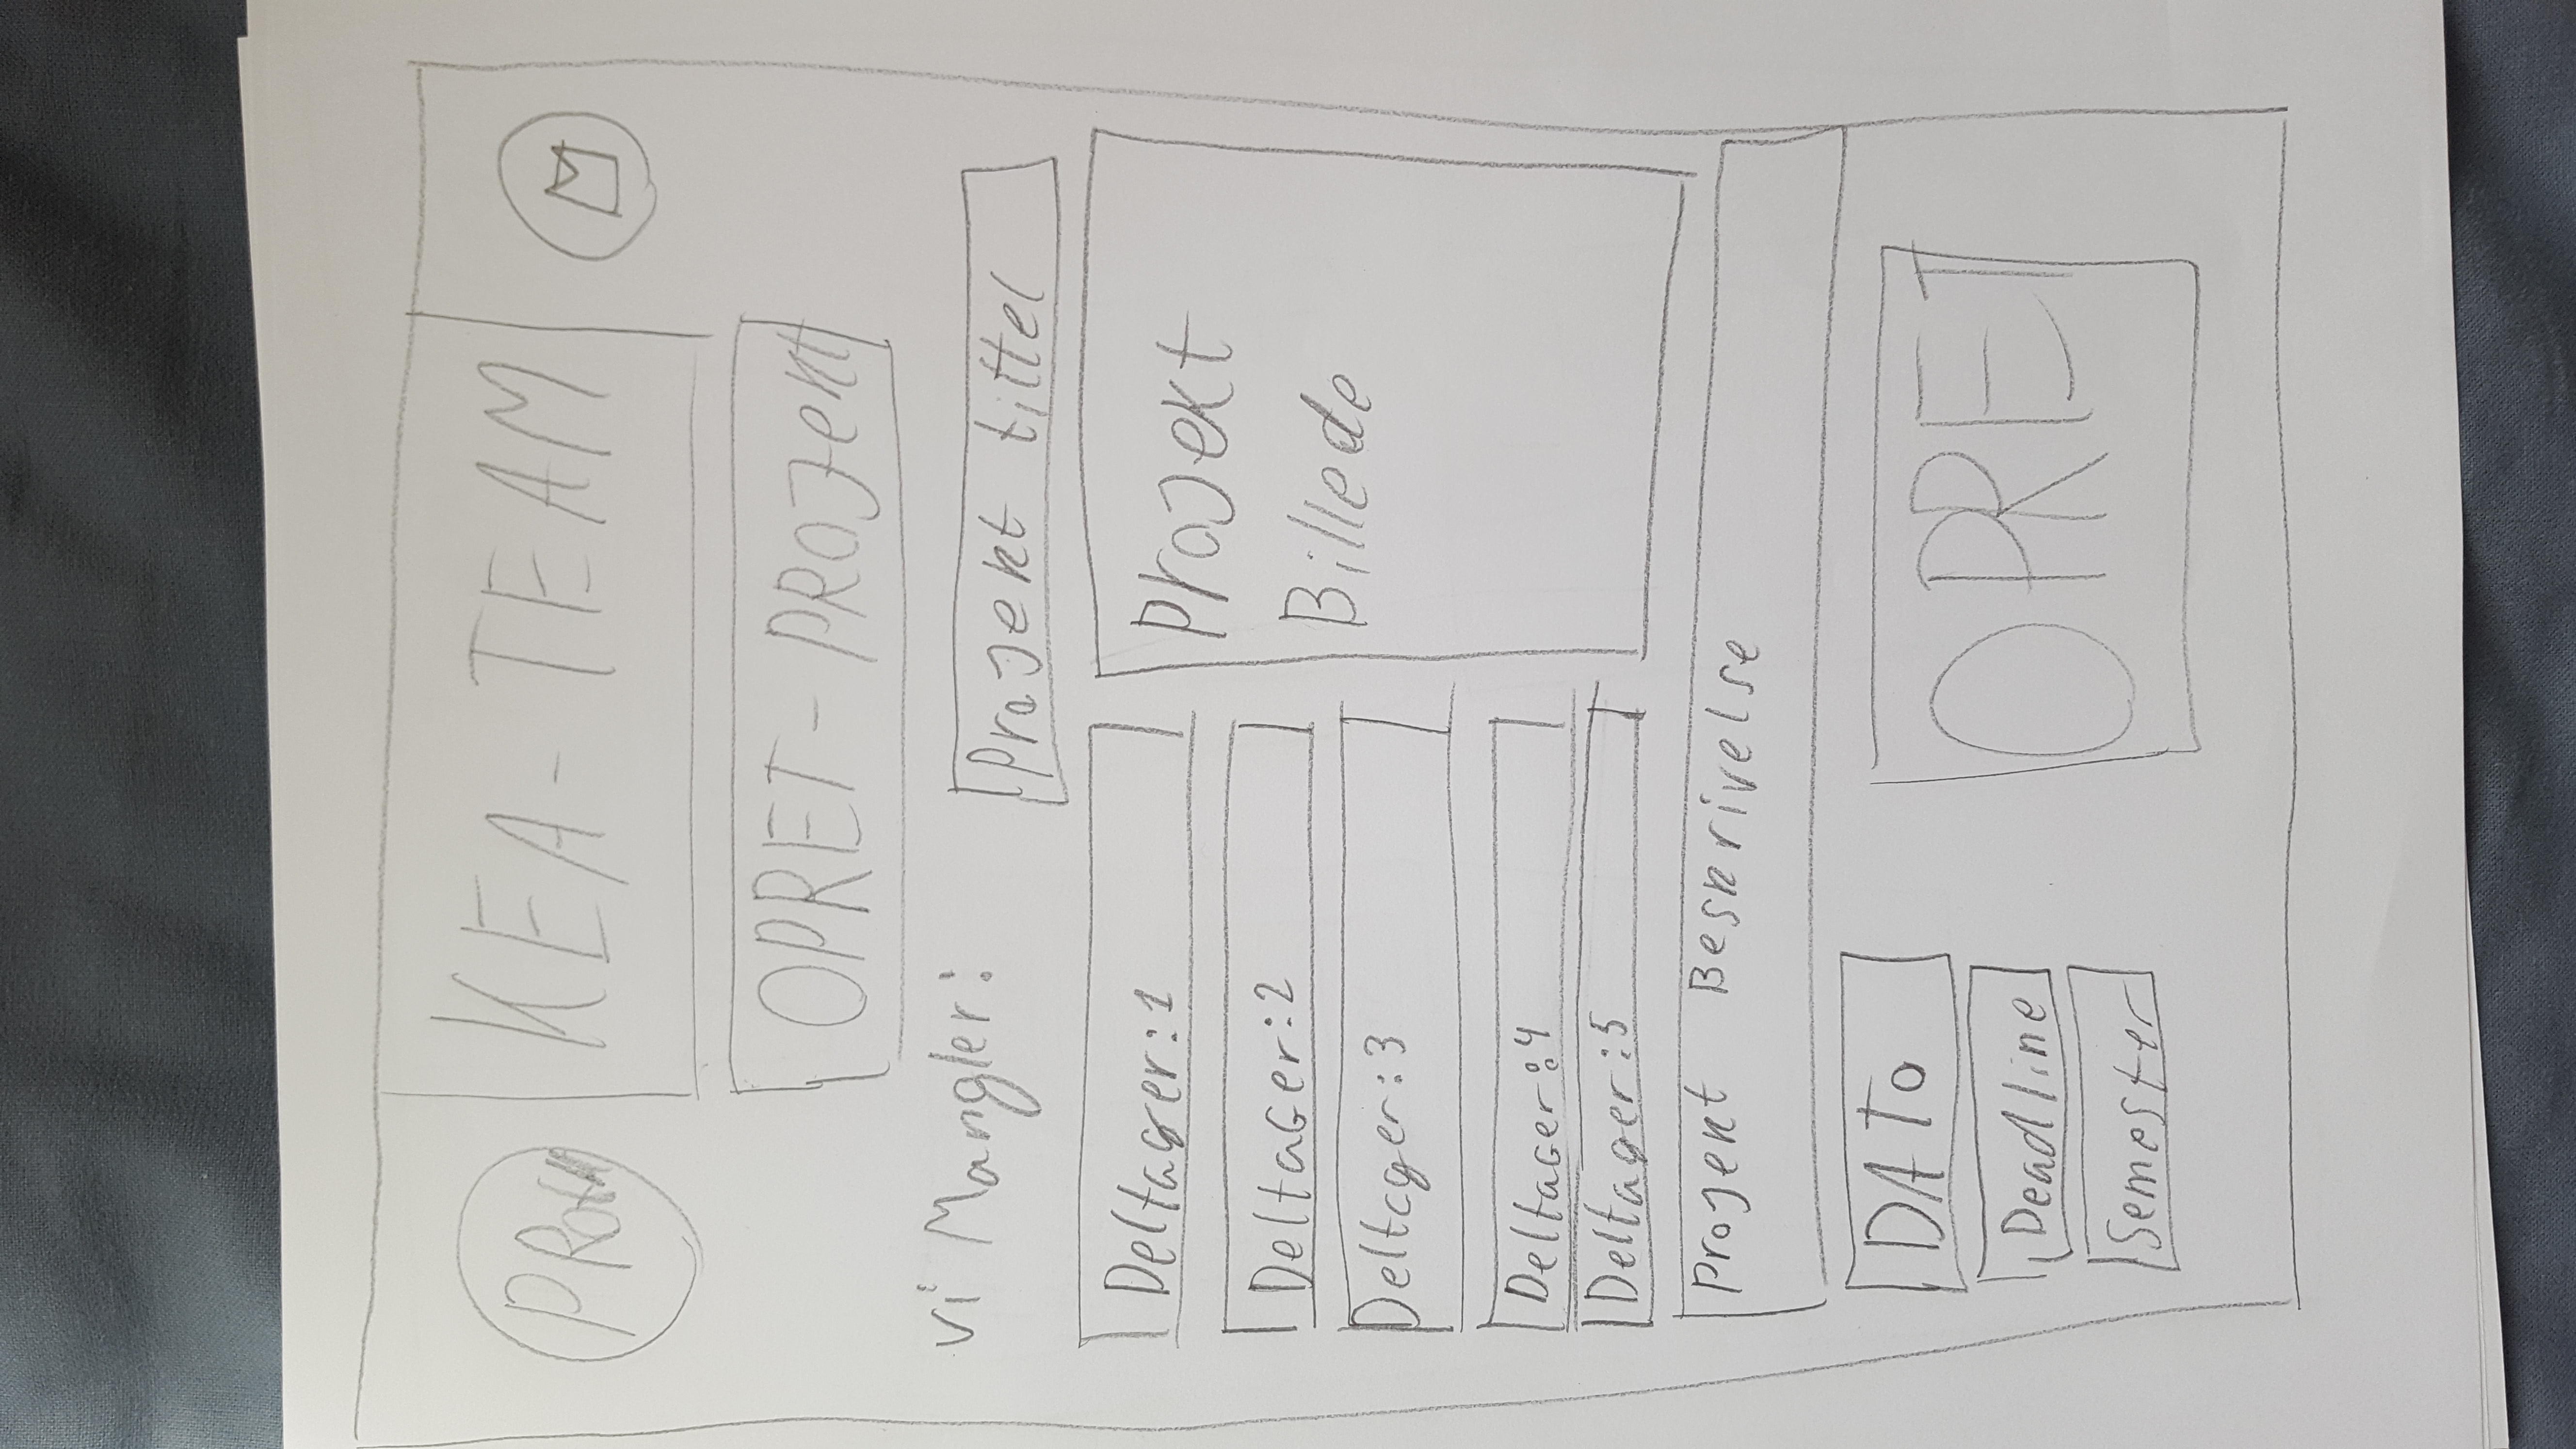 KEA-TEAM
OPRET-PROJekt
Vi Mangler:
Projekt tittel
Deltager:1
Deltager:2
Deltager:3
Deltager:4
Deltager:5
Projekt
Billede
Projekt Beskrivelse
DATo
Deadline
Semester
OPRET